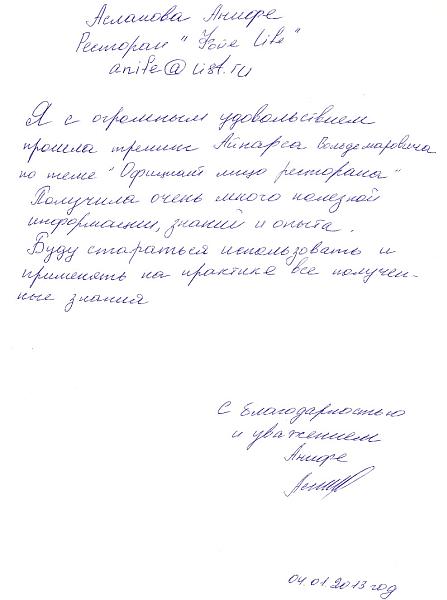 Асланова Анифе
Ресторан " Life"
anife@list.ru
Я с огромным удовольствием
прошла тренинг Айнарса Вольдемаровича
по теме "Официант лицо ресторана"
Получила очень много полезной
информации, знаний и опыта.
Буду стараться использовать и
применять на практике все получен-
ные знания
С благодарностью
и уважением
Анифе
04.01.2013 год